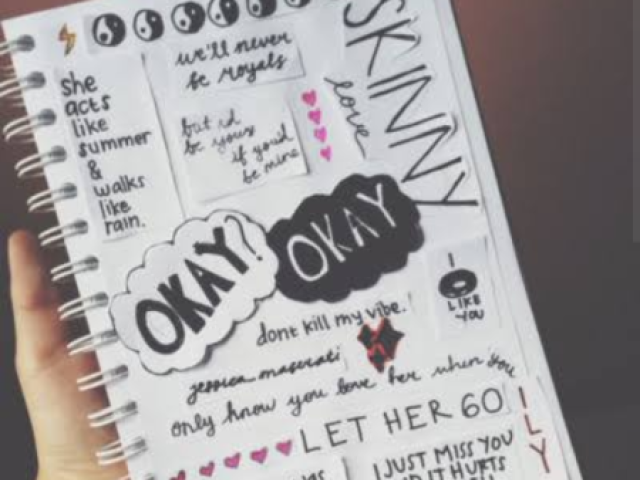 she
acts
like
summer
&
walks
like
rain.
we'll never
be royals
but i'd
be yours
if you'd
be mine
SKINNY
love
OKAY?
OKAY
I
LIKE
YOU
dont kill my vibe.
jessica maserati
only know you love her when you
LET HER GO
ILY
I JUST MISS YOU
IT HURTS